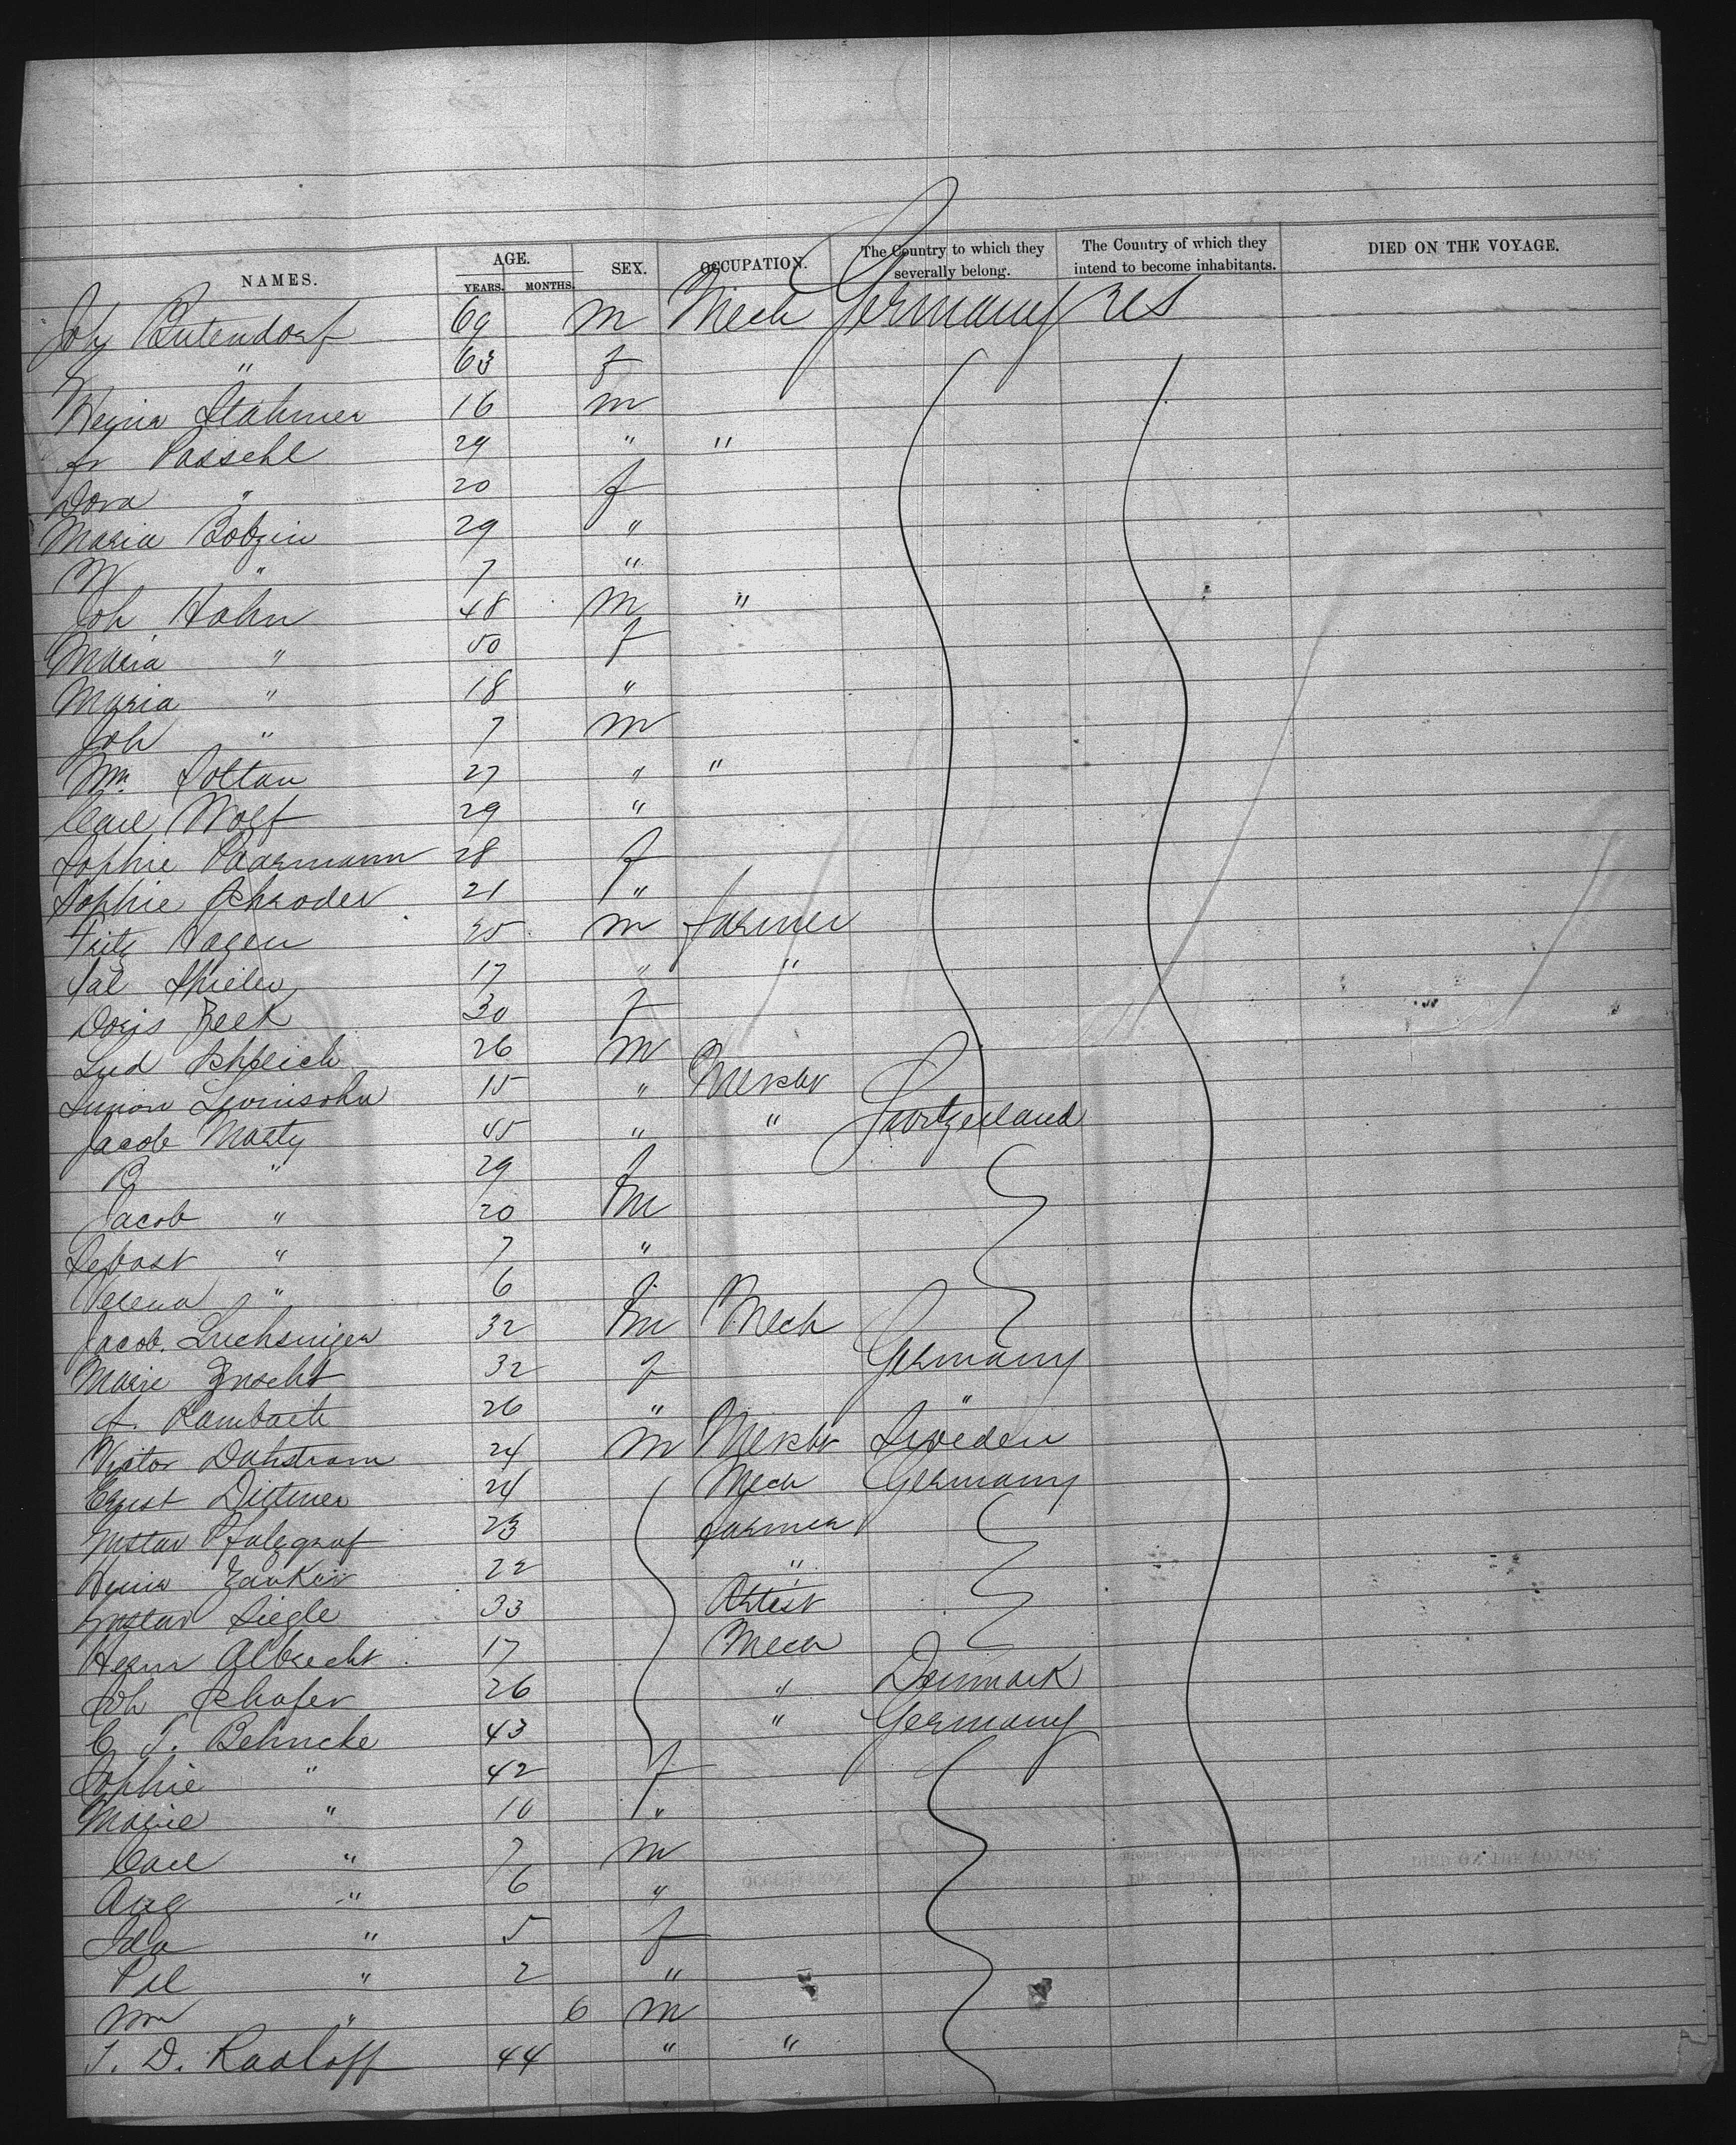 NAMES. AGE. YEARS. MONTHS. SEX. OCCUPATION. The Country to which they severally belong. The Country of which they intend to become inhabitants. DIED ON THE VOYAGE.
Joh Butendorf 69 m Mech Germany US
" 63 f
Heinr Stahmer 16 m
fr Paschl 29 " "
Dora " 20 f
Maria Bobzin 29 "
W " 7 "
Joh Hahn 48 m "
Maria " 50 f
Maria " 18 "
Joh " 7 m
Wm Soltau 27 " "
Carl Wolf 29 "
Sophie Paarmann 28 f
Sophie Schroder 21 "
Fritz Hagen 35 m farmer
17 " "
Doris Beek 30 f
Lud 26 m
Simon Levinsohn 15 " Merchr
Jacob Marty 45 " " Switzerland
" 29 f
Jacob " 20 m
Sebast " 7 "
" 6 f
Jacob Luchsinger 32 m Mech
Marie Knecht 32 f Germany
f. Rambach 26 " "
Victor Dahstrom 24 m Merchr Sweden
Ernst Dittmer 24 Mech Germany
Gustav Pfalzgraf 23 farmer
Heinr 22 "
Gustav Siegle 33 Artist
Herm Albrecht 17 Mech
Joh Schafer 26 " Denmark
C J. Behncke 43 " Germany
Sophie " 42 f
Marie " 10 "
Carl " 7 m
Aug " 6 "
Ida " 5 f
" 2 "
Wm " 6 m
J. D. Radloff 44 " "